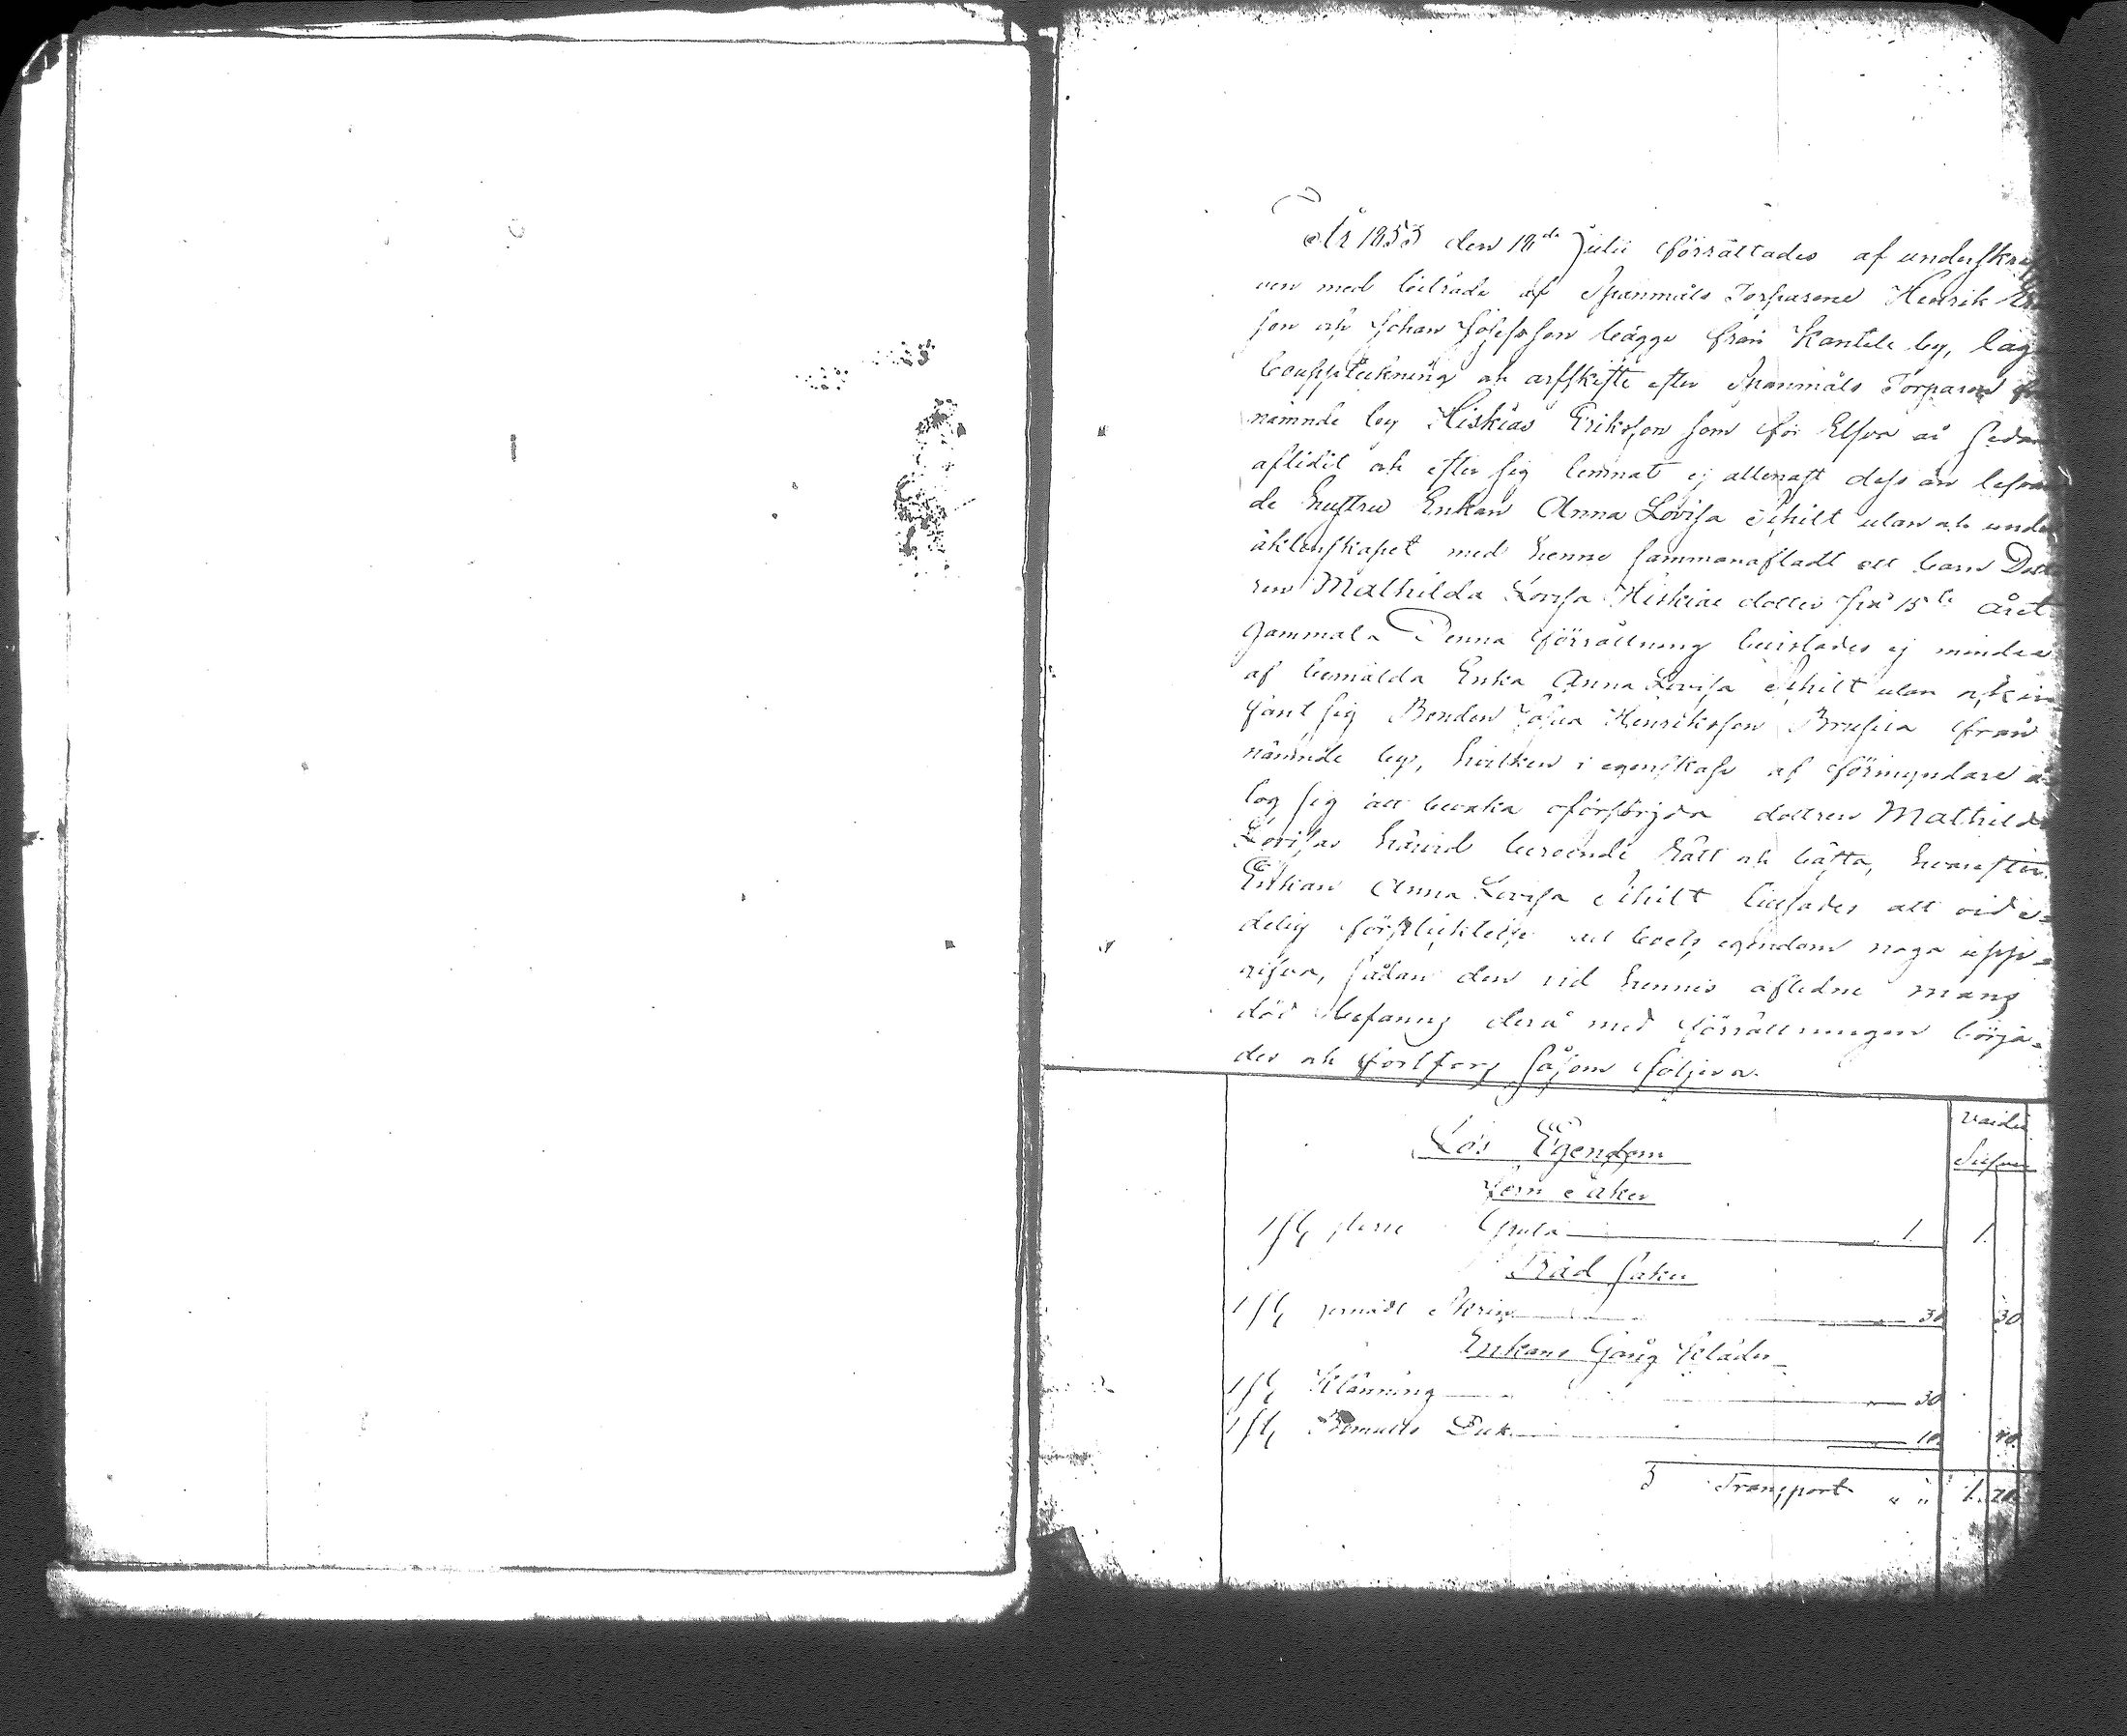 År 1853 den 18de Julii förrättades af underskref
ven med biträde af Spanmåls Torparene Henrik
son och Johan Josefsson bägge från Kantele by, lag
bouppteckning och arfskifte efter Spanmåls Torparen
nämnde by Hiskias Eriksson som för Elfva år sedan
aflidit och efter sig lemnat ej allenast dess än lefvan
de hustru Enkan Anna Lovisa Schilt utan ock under
äktenskapet med henne sammanafladt ett barn Dott
ren Mathilda Lovisa Hiskiae dotter på 15de året
gammal. Denna förrättning bevistades ej mindre
af bemälda Enka Anna Lovisa Schilt utan
jämt sig Bonden Josua Henriksson Brusila från
nämnde by, hvilken i egenskap af förmyndare å
tog sig att bevaka oförsörjda dottren Mathilda
Lovisas härvid beroende rätt och bästa, hvarefter
Enkan Anna Lovisa Schilt tillsades att vid e=
delig förpliktelse all boets egendom noga upp=
gifva, sådan den vid hennes aflidne mans
död befanns derå med förrättningen börja=
des och fortfors såsom följer.
Lös Egendom
Värde
Silfver
Jern Saker
1 st större Gryta 1. 1.
Träd saker
1 st Skrin 30 30
Enkans Gång kläder
1 st Klänning 30
1 st Bomulls Duk 10 40
Transport " " 1. 70